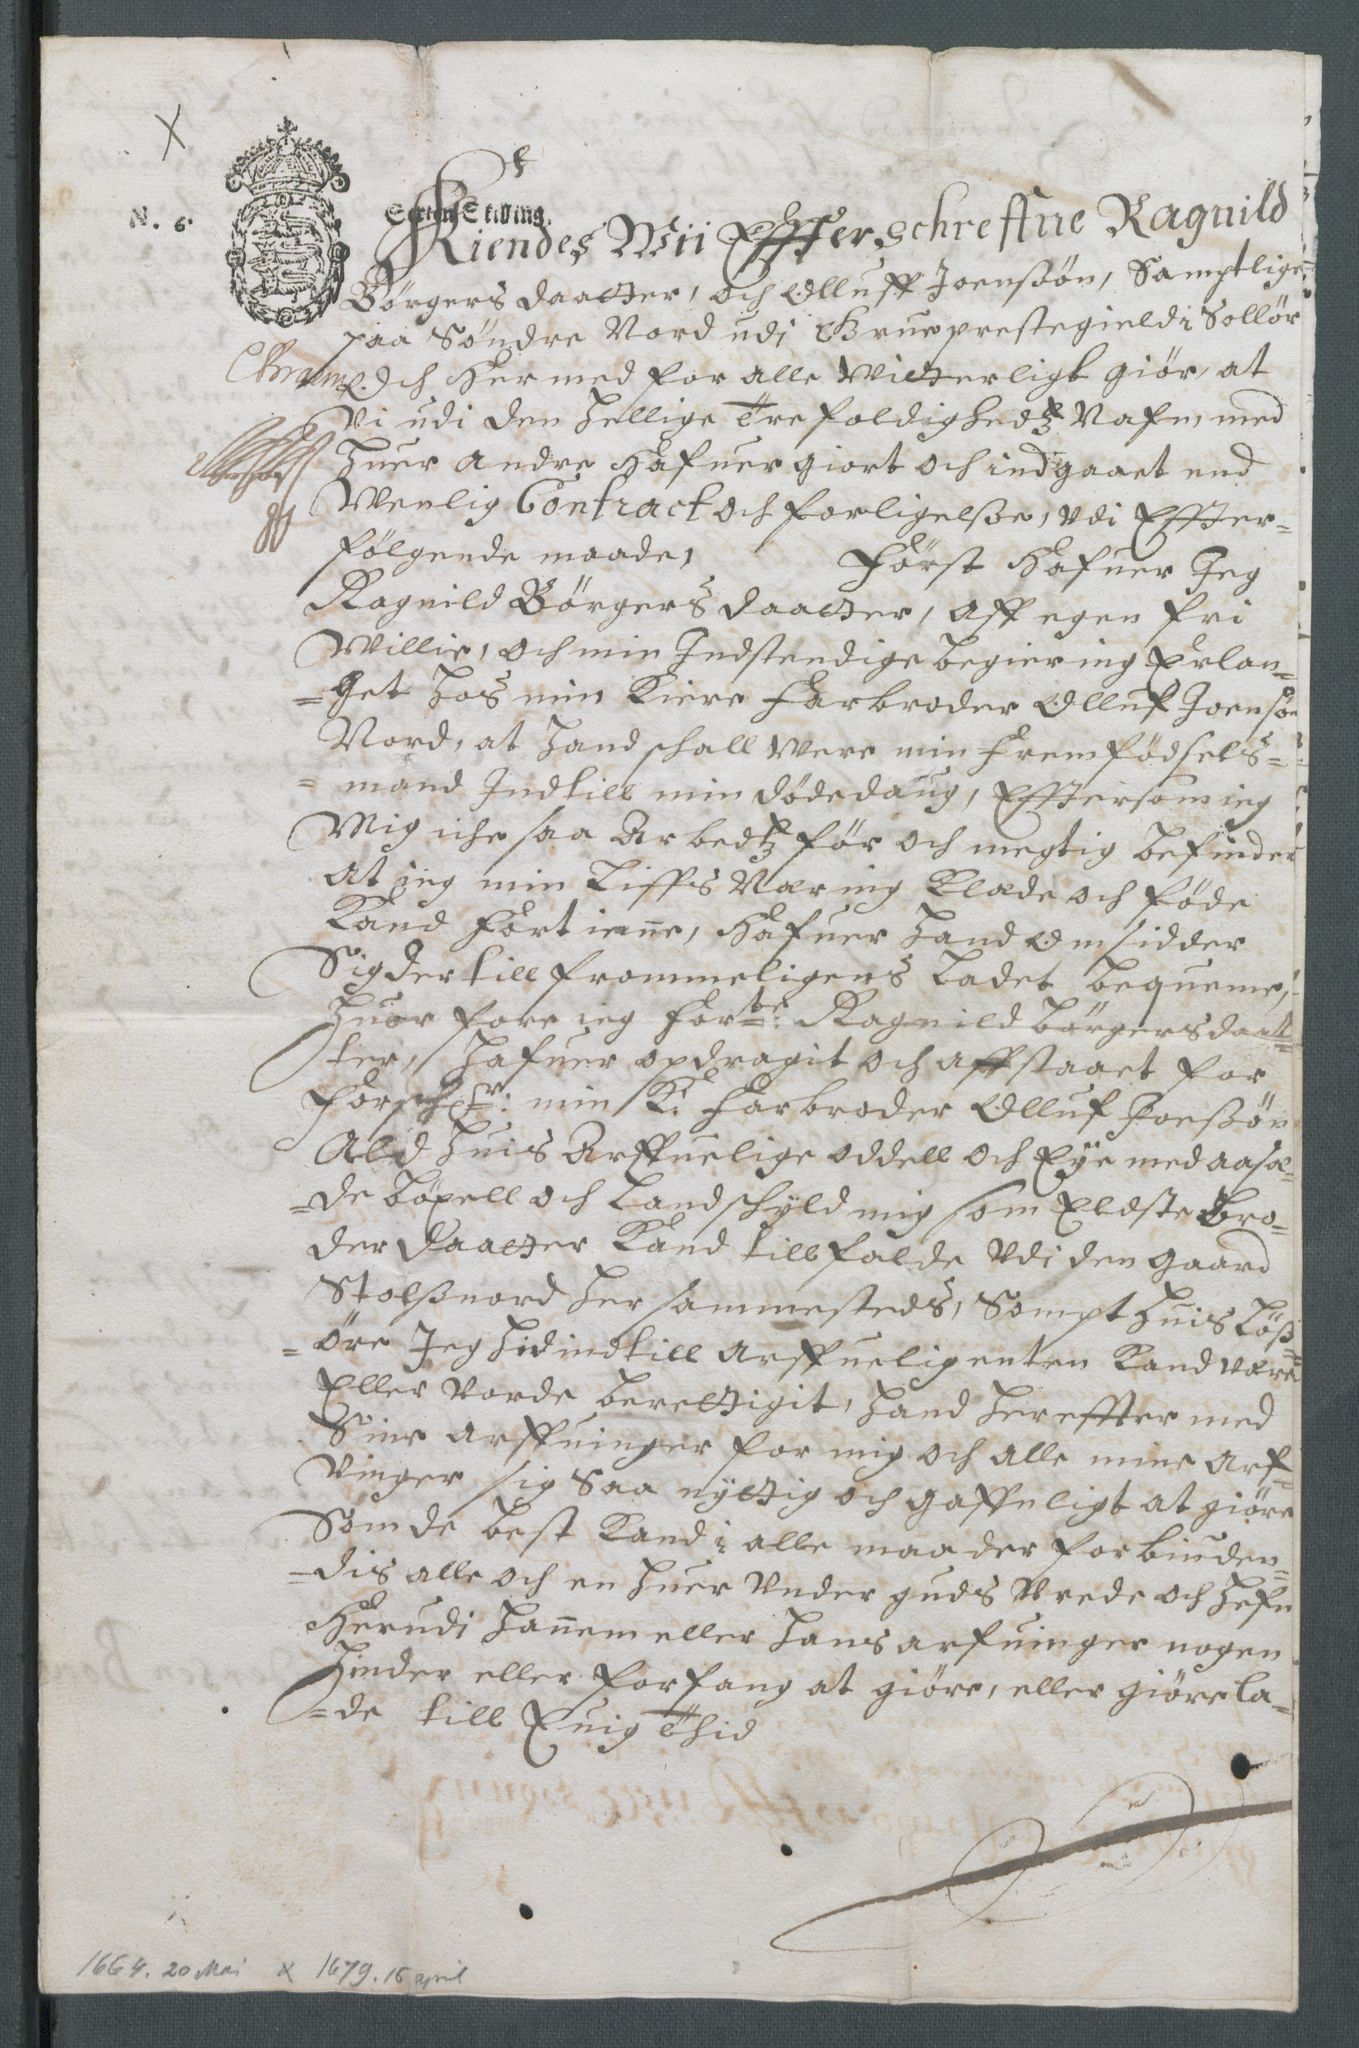 N. 6.
Sexten Skilling.
Kiendes Wii Effterschreffne Ragnild
Börgers daatter, och Olluff Joensøn, Samptlige
paa Söndre Nord udj Grue prestegield i Sollör
Och hermed for alle Witterligt giör, at
Vi udi den hellige trefoldighedtz Nafn, med
huer andre hafuer giort och indgaaet end
Wenlig Contract och forligelsse, udi Effter-
følgende maade, Först hafuer Jeg
Ragnild Börgers daatter, aff egen fri
Willie, och min Indstendige begiering Erlan-
=get hos min kiere farbroder Olluf Joensøn
Nord, at hand schall were min fremfödsels-
=mand Indtill min dödedaug, Efftersom ieg
Mig iche saa Arbedtz för och megtig befinder
at jeg min Liffs Næring Klæde och føde
Kand fortienne, hafuer hand Omsidder
Sig der till frommeligens ladet bequeme,
huor fore ieg forbte: Ragnild börgersdaat-
ter, hafuer opdragit och affstaaet for
forschr: min K: farbroder Olluf Joenssön
Ald huis Arffuelige oddell och Eÿe med aasæ-
=de löxell och Landschÿld mig som Eldste bro-
der daatter Kand tillfalde Udi den gaard
Stolssnord her sammesteds, Sampt huis Löss-
=öre Jeg hidindtill arffueligenten Kand være
Eller vorde berettigit, hand hereffter med
Sine arffuinger for mig och alle mine arf-
vinger sig saa nÿttig och gaffnligt at giöre
Som de best Kand i alle maader forbinden-
=dis alle och en huer under guds Vrede och hefn
herudi hannem eller hans arfuinger nogen
hinder eller forfang at giöre, eller giöre la-
=de till Euig thid
1664. 20 Mai x 1679. 15 april